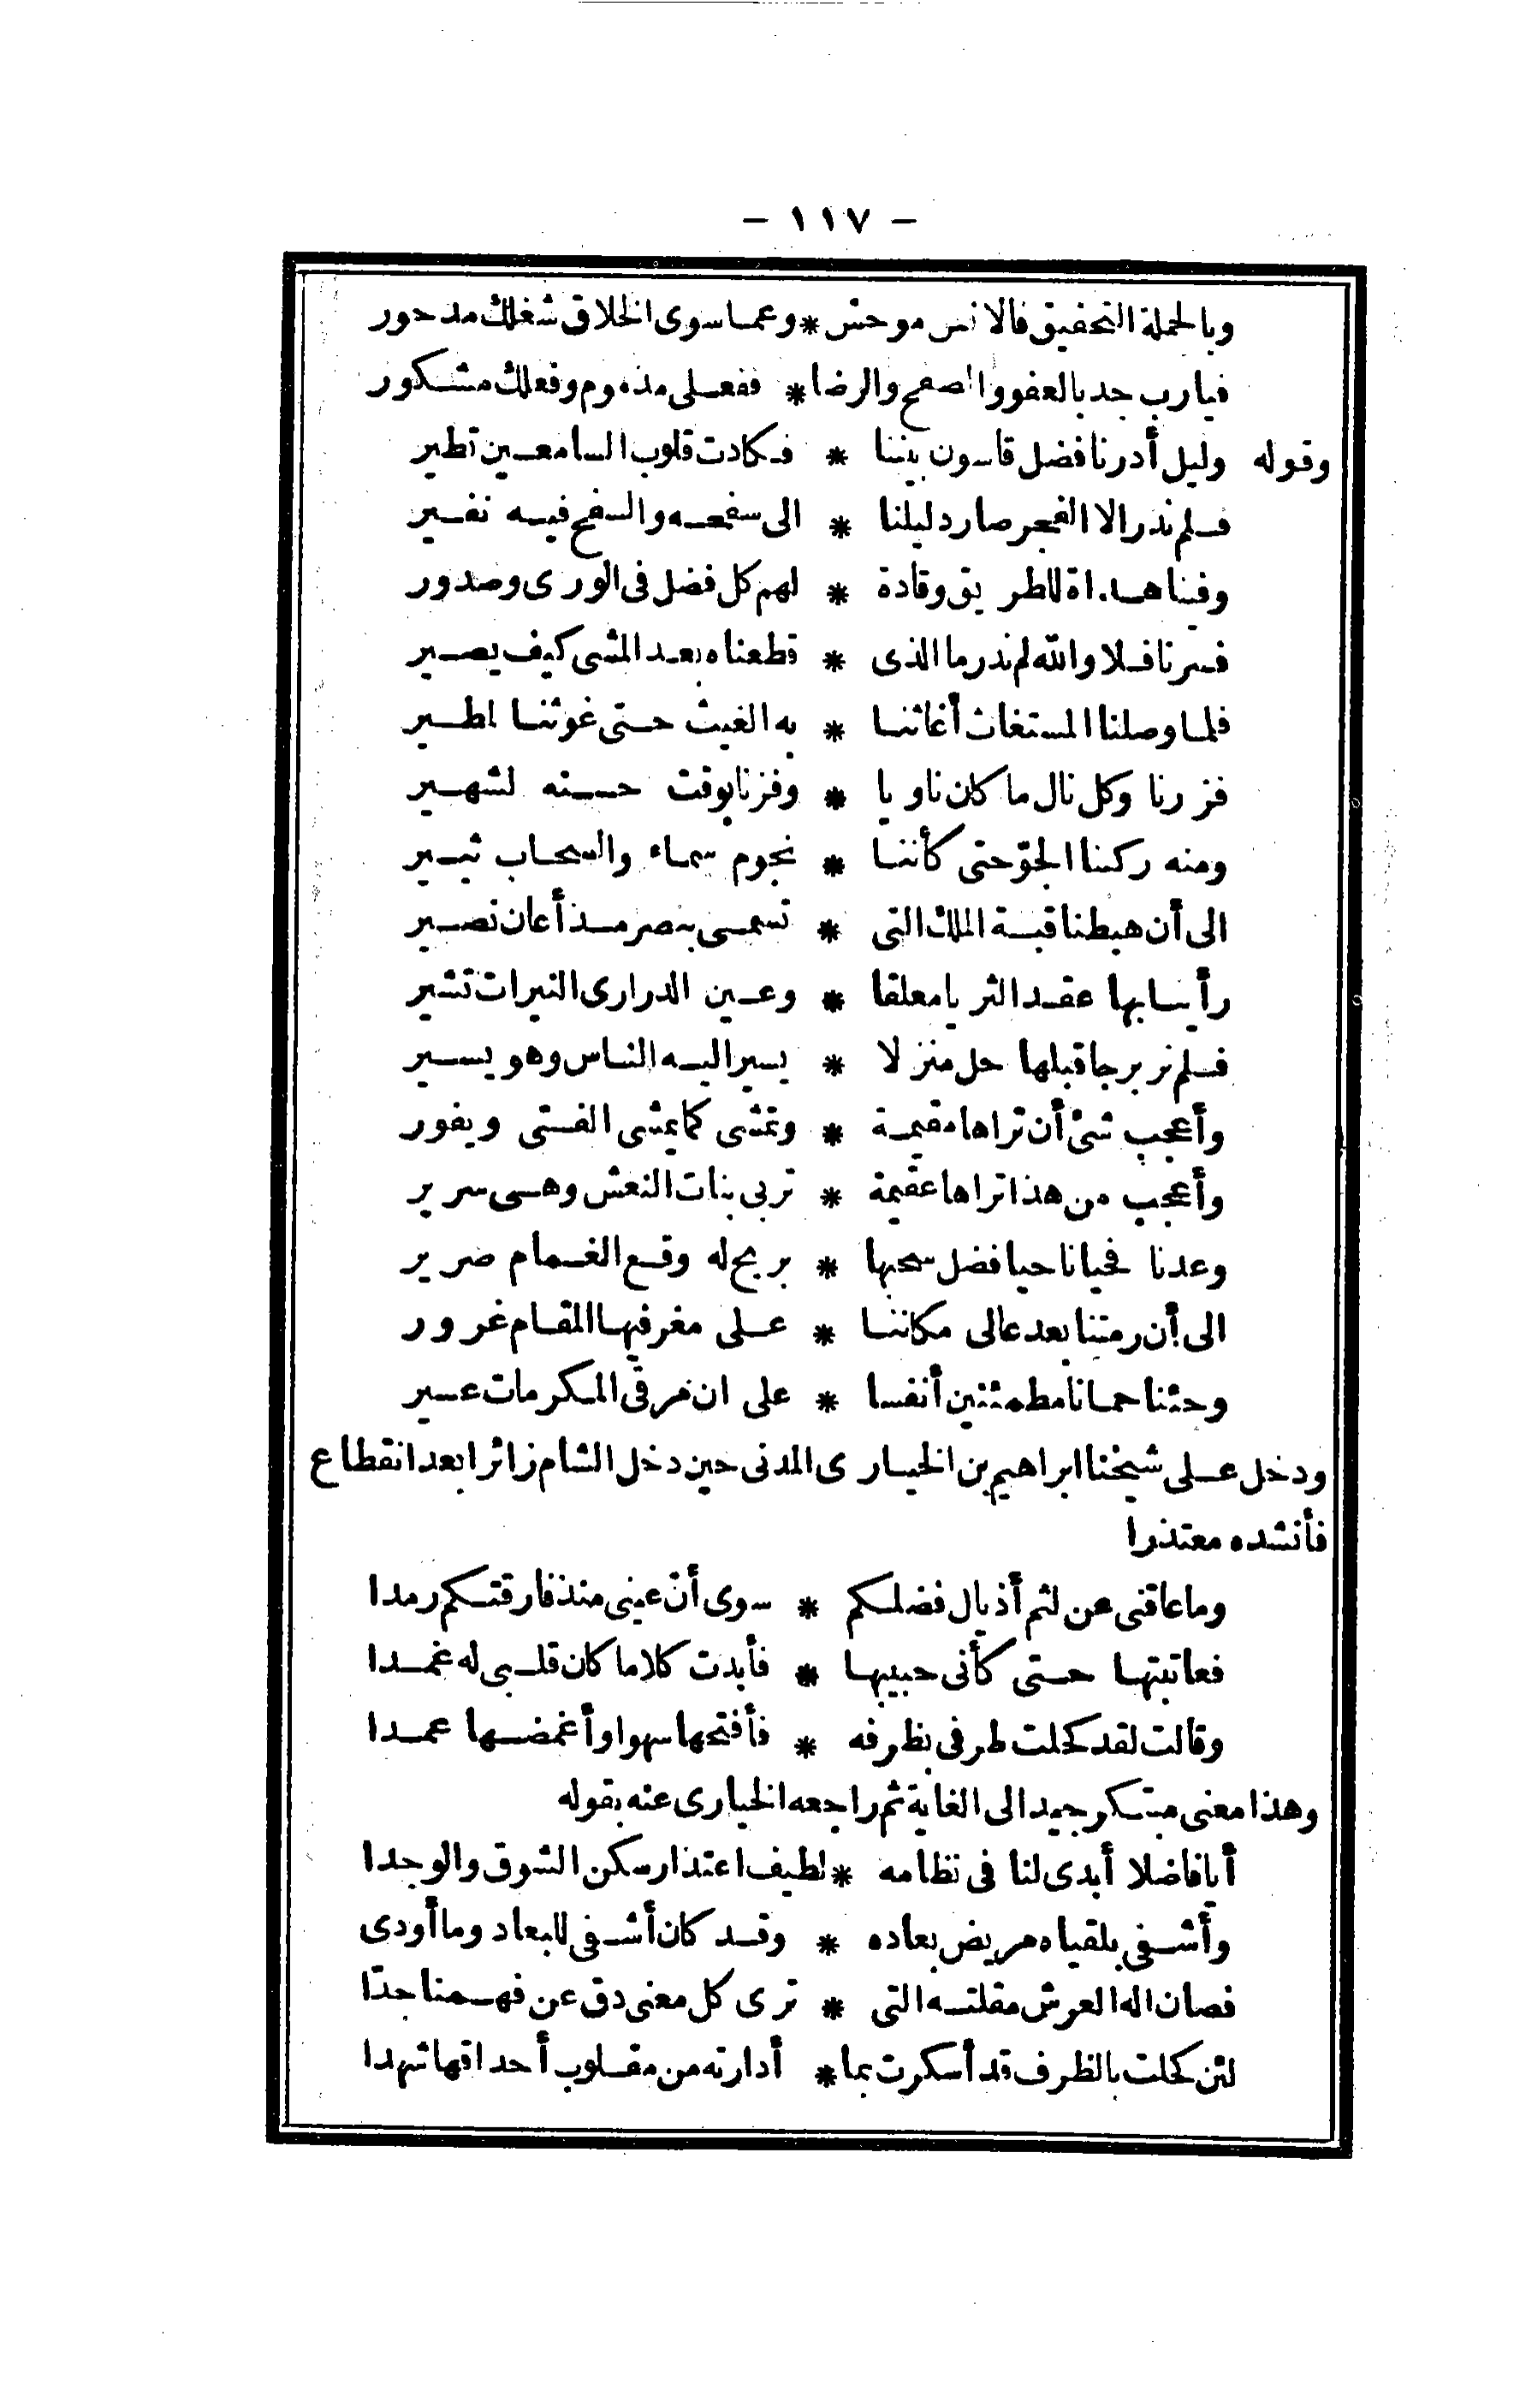 - ١١٧ -
وبالجملة التحقيق فالانس موحش * وعما سوى الخلاق شغلك مدحور
فيارب جد بالعفو والصفح والرضا * ففعلى مذموم وفعلك مشكور
وقوله وليل أدرنا فضل قاسون بيننا * فكادت قلوب السامعين تطير
فلم ندر الا الفجر صار دليلنا * الى سفحه والسفح فيه نفير
وفينا هداة للطريق وقادة * لهم كل فضل فى الورى وصدور
فسرنا فلا والله لم ندر ما الذى * قطعناه بعد المشى كيف يصير
فلما وصلنا المستغاث أغاثنا * به الغيث حتى غوثنا لمطير
فزرنا وكل نال ما كان ناويا * وفزنا بوقت حسنه لشهير
ومنه ركبنا الجوّ حتى كأننا * نجوم سماء والسحاب تسير
الى أن هبطنا قبة الملك التى * تسمى بنصر مذ أعان نصير
رأينا بها عقد الثريا معلقا * وعين الدرارى النيرات تشير
فلم نر برجا قبلها حل منزلا * يسير اليه الناس وهو يسير
وأعجب شئ أن تراها مقيمة * وتمشى كما يمشى الفتى ويفور
وأعجب من هذا تراها عقيمة * تربى بنات النعش وهى سرير
وعدنا فحيانا حيا فضل سحبها * بريح له وقع الغمام صرير
الى أن رمتنا بعد عالى مكاننا * على مغر فيها المقام غرور
وجئنا حمانا مطمئنين أنفسا * على ان مرقى المكرمات عسير
ودخل على شيخنا ابراهيم بن الخيارى المدنى حين دخل الشام زائرا بعد انقطاع
فأنشده معتذرا
وما عاقنى عن لثم أذيال فضلكم * سوى أنّ عينى منذ فارقتكم رمدا
فعاتبتها حتى كأنى حبيبها * فأبدت كلاما كان قلبى له غمدا
وقالت لقد كحلت طرفى بظرفه * فأفتحها سهوا وأغمضها عمدا
وهذا معنى مبتكر جيد الى الغاية ثم راجعه الخيارى عنه بقوله
أيا فاضلا أبدى لنا فى نظامه * لطيف اعتذار سكن الشوق والوجدا
وأشفى بلقياه مريض بعاده * وقد كان أشفى للبعاد وما أودى
فصان اله العرش مقلته التى * ترى كل معنى دق عن فهمنا جدّا
لئن كحلت بالظرف قد أسكرت بما * أدارته من مقلوب أحداقها شهدا